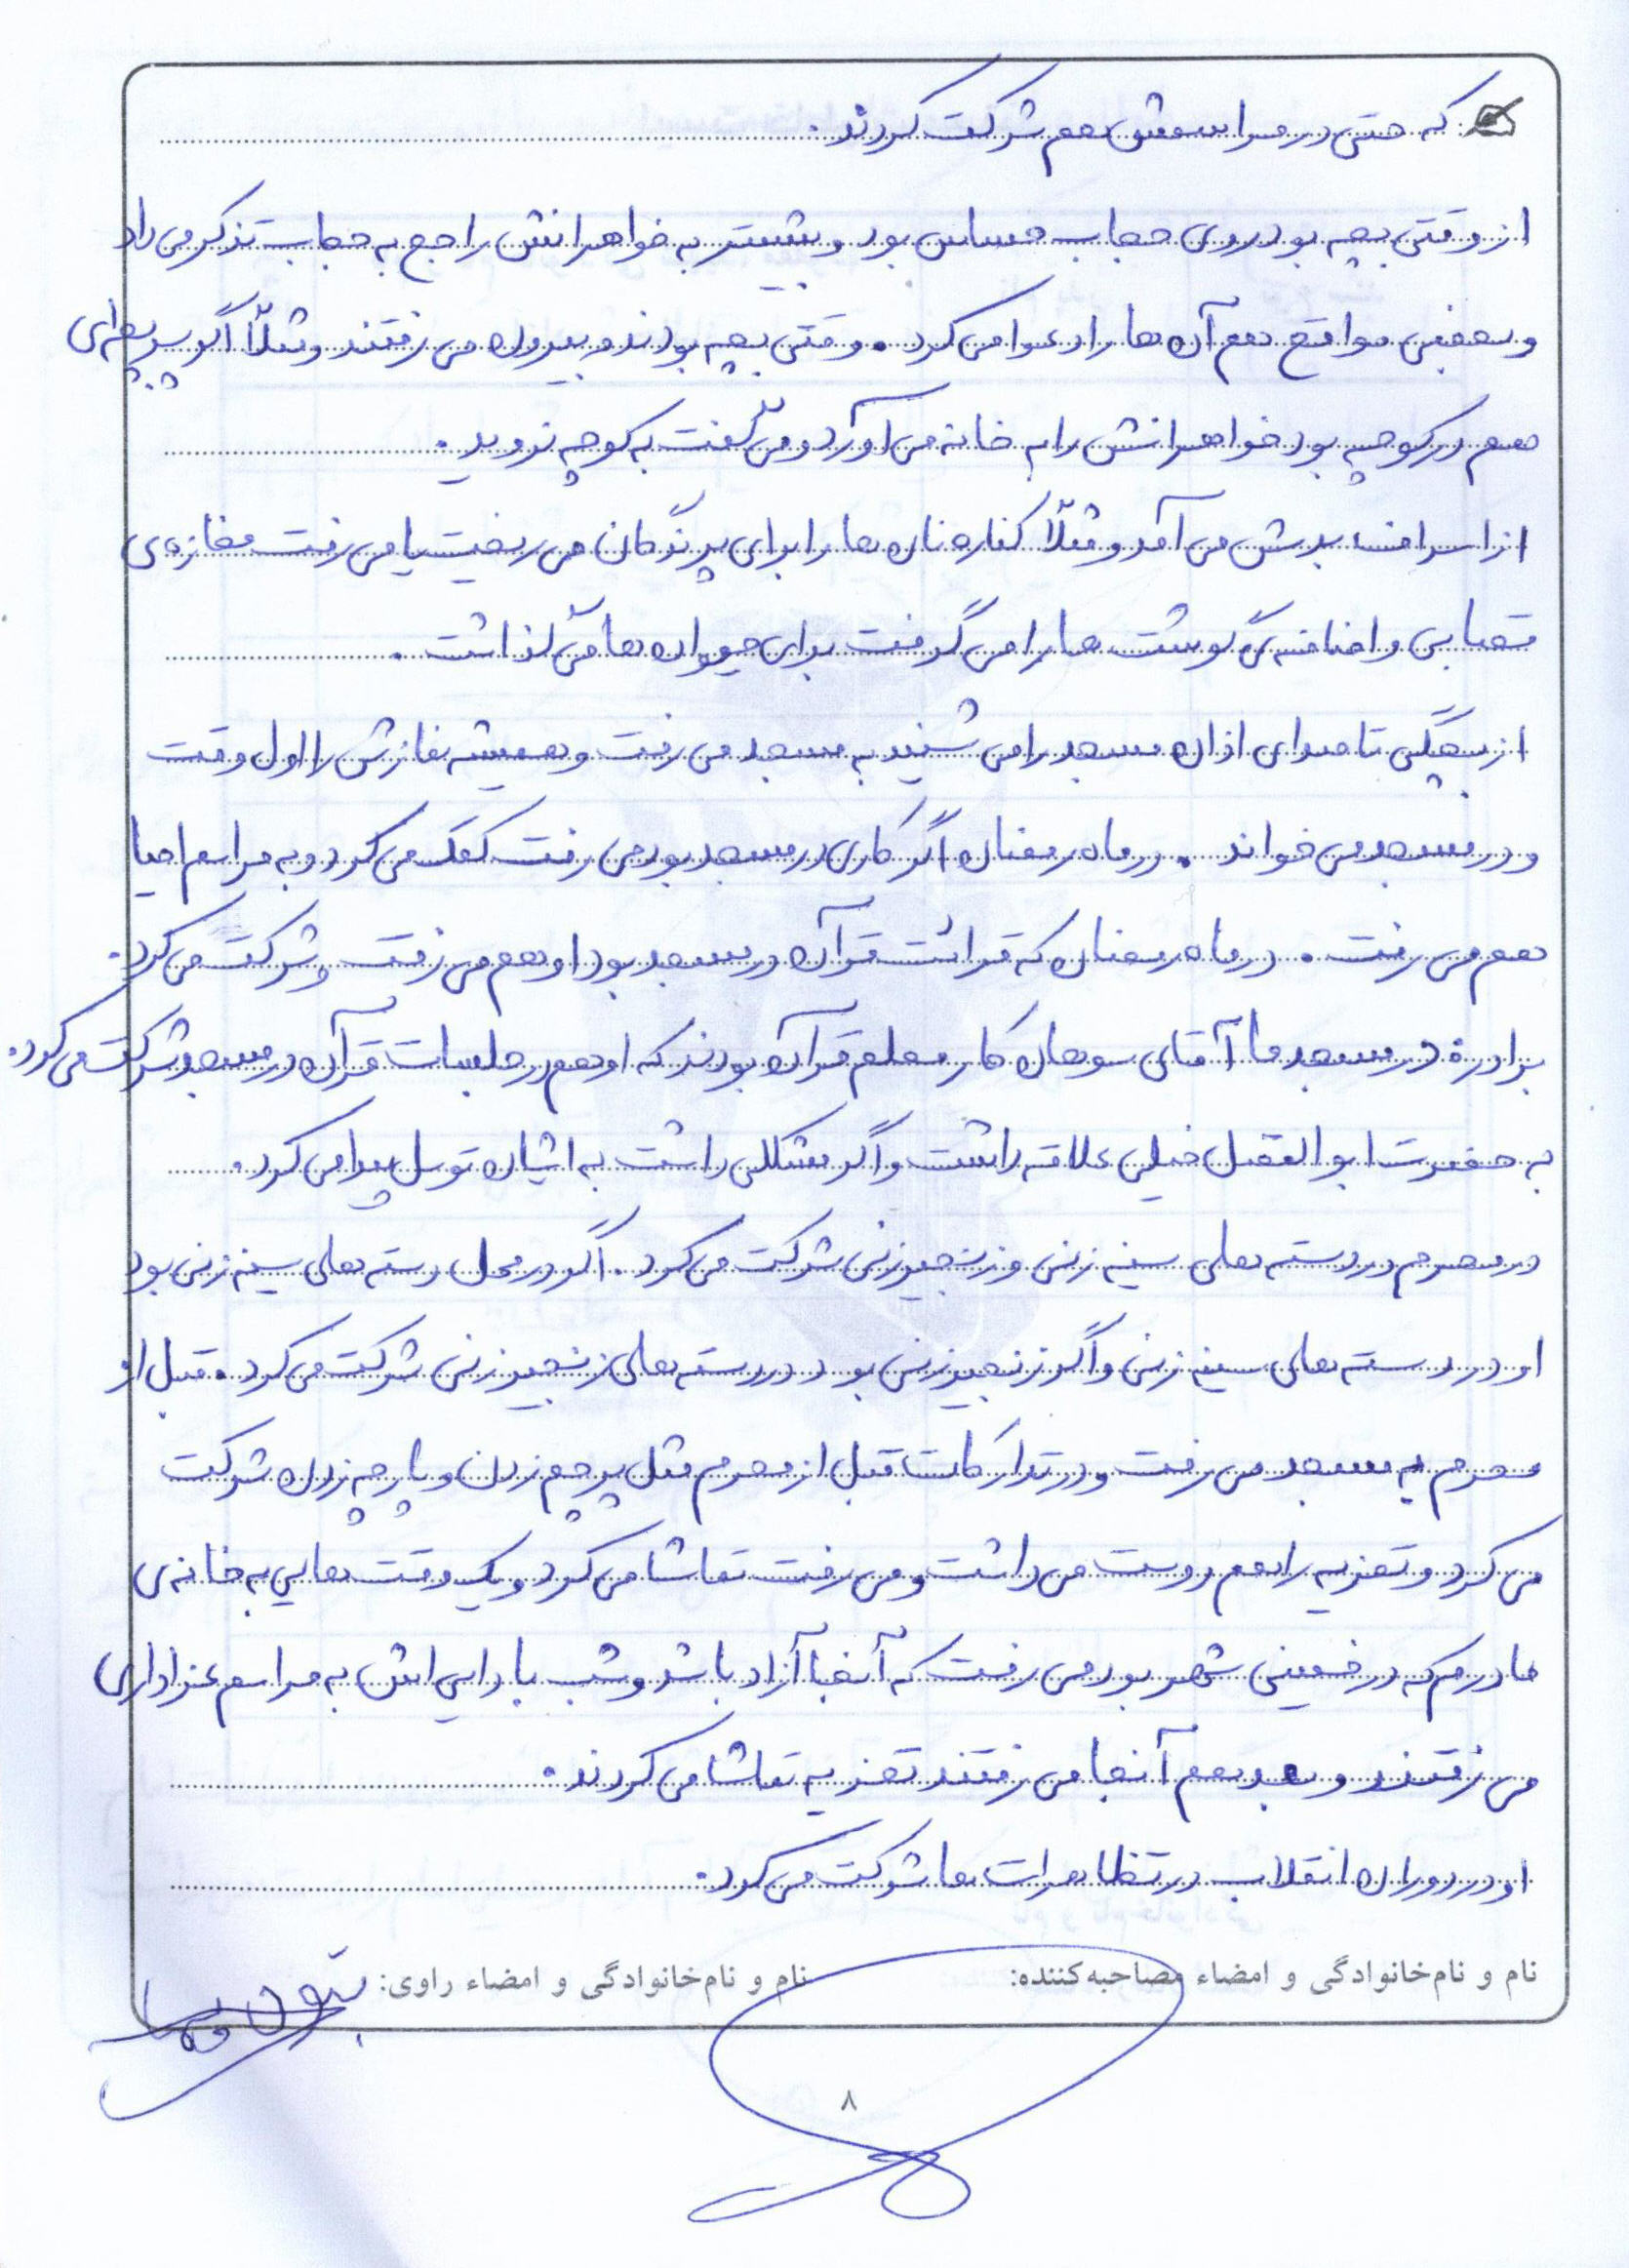 که حتی در مراسمش هم شرکت کردند.
از وقتی بچه بود روی حجاب حساس بود و بیشتر به خواهرانش راجع به حجاب تذکر می داد
و بعضی مواقع هم آن ها را دعوا می کرد. وقتی بچه بودند و بیرون می رفتند و مثلاً اگر پسر بچه ای
هم در کوچه بود خواهرانش را به خانه می آورد و می گفت به کوچه نروید.
از اسراف بدش می آمد و مثلاً کناره نان ها را برای پرندگان می ریخت یا می رفت مغازه ی
قصابی و اضافه ی گوشت ها را می گرفت برای حیوان ها می گذاشت.
از بچگی تا صدای اذان مسجد را می شنید به مسجد می رفت و همیشه نمازش را اول وقت
و در مسجد می خواند. در ماه رمضان اگر کاری در مسجد بود می رفت کمک می کرد و به مراسم احیا
هم می رفت. در ماه رمضان که قرائت قرآن در مسجد بود او هم می رفت و شرکت می کرد.
برادر در مسجد ما آقای سوهان کار معلم قرآن بودند که او هم در جلسات قرآن در مسجد شرکت می کرد.
به حضرت ابوالفضل خیلی علاقه داشت و اگر مشکلی داشت به ایشان توسل پیدا می کرد.
در محرم در دسته های سینه زنی و زنجیرزنی شرکت می کرد. اگر در محل دسته های سینه زنی بود
او در دسته های سینه زنی و اگر زنجیرزنی بود در دسته های زنجیرزنی شرکت می کرد. قبل از
محرم به مسجد می رفت و در تدارکات قبل از محرم مثل پرچم زدن و پارچه زدن شرکت
می کرد و تعزیه را هم دوست می داشت و می رفت تماشا می کرد و یک وقت هایی به خانه ی
مادرم که در خمینی شهر بود می رفت که آنجا آزاد باشد و شب با دایی اش به مراسم عزاداری
می رفتند و بعد هم آنجا می رفتند تعزیه تماشا می کردند.
او در دوران انقلاب در تظاهرات ها شرکت می کرد.
نام و نام‌خانوادگی و امضاء مصاحبه‌کننده: نام و نام‌خانوادگی و امضاء راوی:
۸